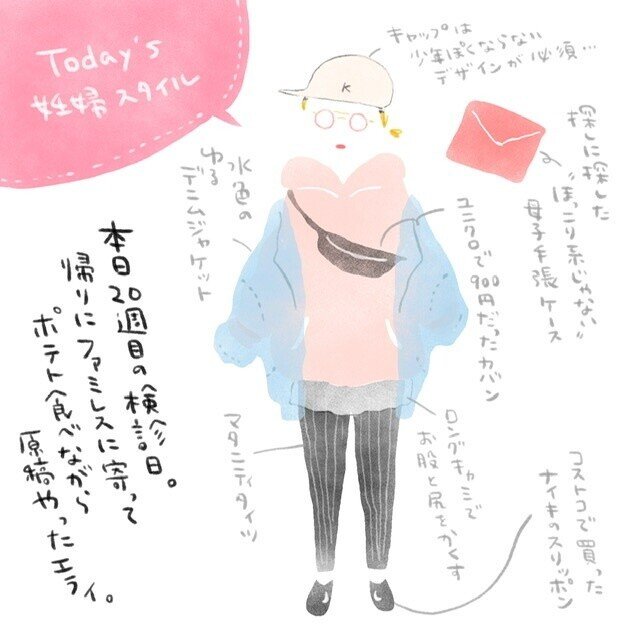 Today's
妊婦スタイル
キャップは
少年ぽくならない
デザインが必須…
K
探しに探した
"ほっこり系じゃない"
母子手帳ケース
水色の
ゆる
デニムジャケット
ユニクロで
900円だったカバン
本日20週目の検診日。
帰りにファミレスに寄って
ポテト食べながら
原稿やったエライ。
マタニティタイツ
ロングキャミで
お股と尻をかくす
コストコで買った
ナイキのスリッポン